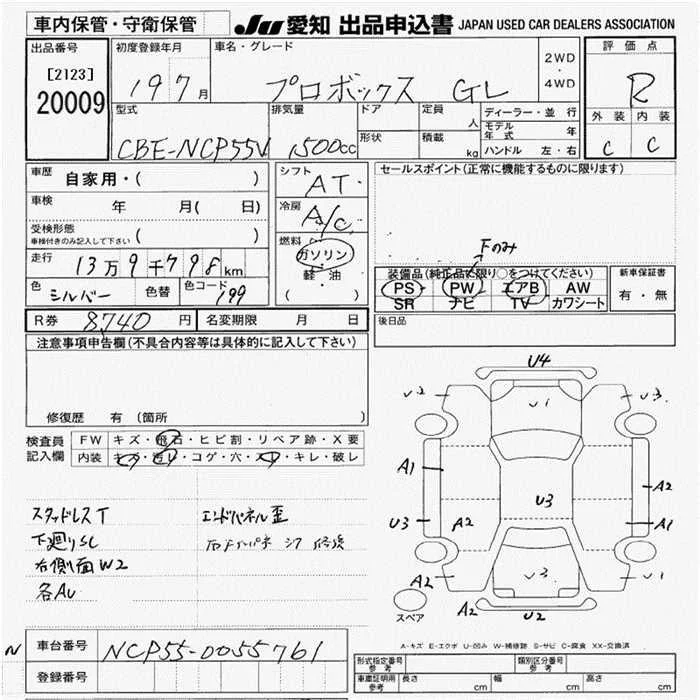 車内保管・守衛保管
JU 愛知 出品申込書 JAPAN USED CAR DEALERS ASSOCIATION
出品番号
[2123]
20009
初度登録年月
19 7 月
車名・グレード
プロボックス GL
2WD
・
4WD
評価点
R
外装 内装
C C
型式
CBE-NCP55V
排気量
1500cc
ドア
形状
定員
人
積載
kg
ディーラー・並行
モデル年式 年
ハンドル 左・右
車歴 自家用・( )
車検 年 月(日)
受検形態
車検付きのみ記入して下さい ( )
走行 13万9千798km
色 シルバー 色替 色コード 199
シフト AT
冷房 A/C
燃料
ガソリン
軽・油
( )
セールスポイント(正常に機能するものに限ります)
Fのみ
装備品(純正品で限り○をつけてください)
PS PW エアB AW
SR ナビ TV カワシート
新車保証書
有・無
R券 8,740 円 名変期限 月 日
後日品
注意事項申告欄(不具合内容等は具体的に記入して下さい)
修復歴 有 (箇所
検査員
記入欄
FW キズ・飛石・ヒビ割・リペア跡・X要
内装 キズ・汚レ・コゲ・穴・スレ・キレ・破レ
スタッドレスT
下廻りSC
右側面W2
各AU
エンドパネル歪
U4
U2
U1
U3
A1
A2
U3
A2
U3
A1
A2
U3
U1
A2
U2
スペア
A-キズ E-エクボ U-凹み W-補修跡 S-サビ C-腐食 XX-交換済
N
車台番号 NCP55-0055761
登録番号
型式指定番号
参考
類別区分番号
参考
車庫証明用
参考
長さ cm 幅 cm 高さ cm